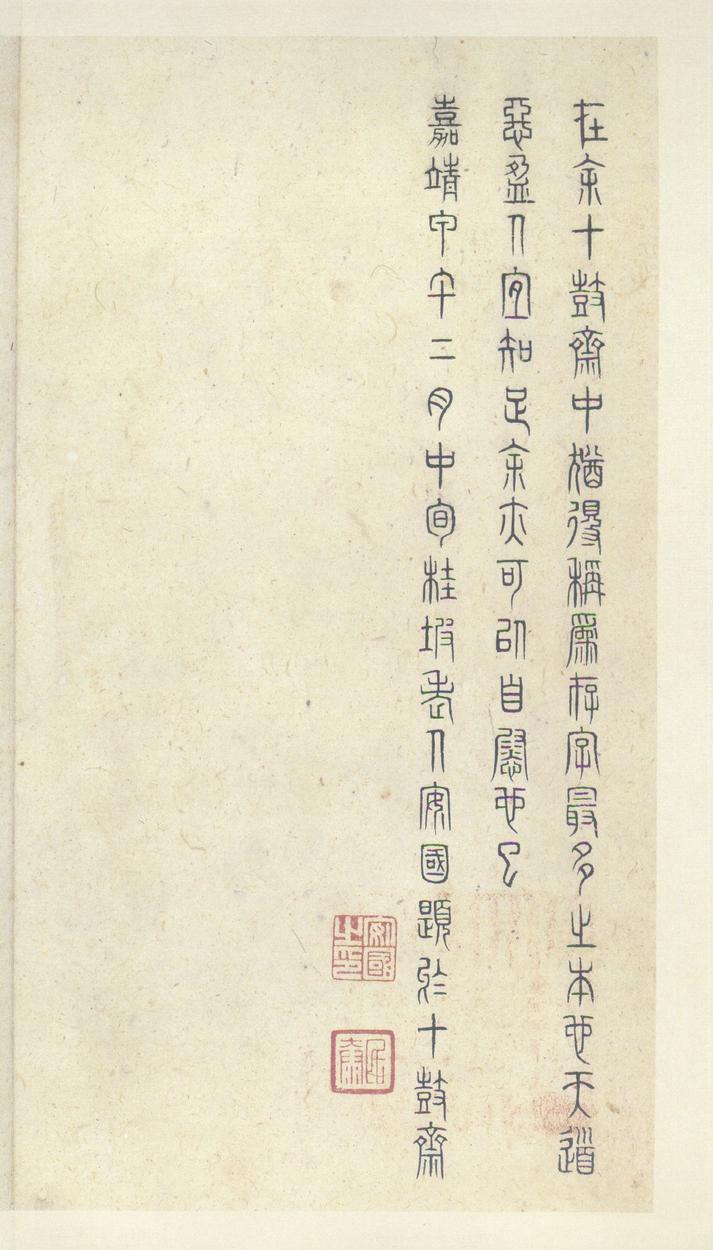 在余十鼓齋中猶得稱為存字最多之本也天道
惡盈人宜知足余亦可以自慰也已
嘉靖甲午二月中旬桂坡老人安國題於十鼓齋
安國之印
民泰